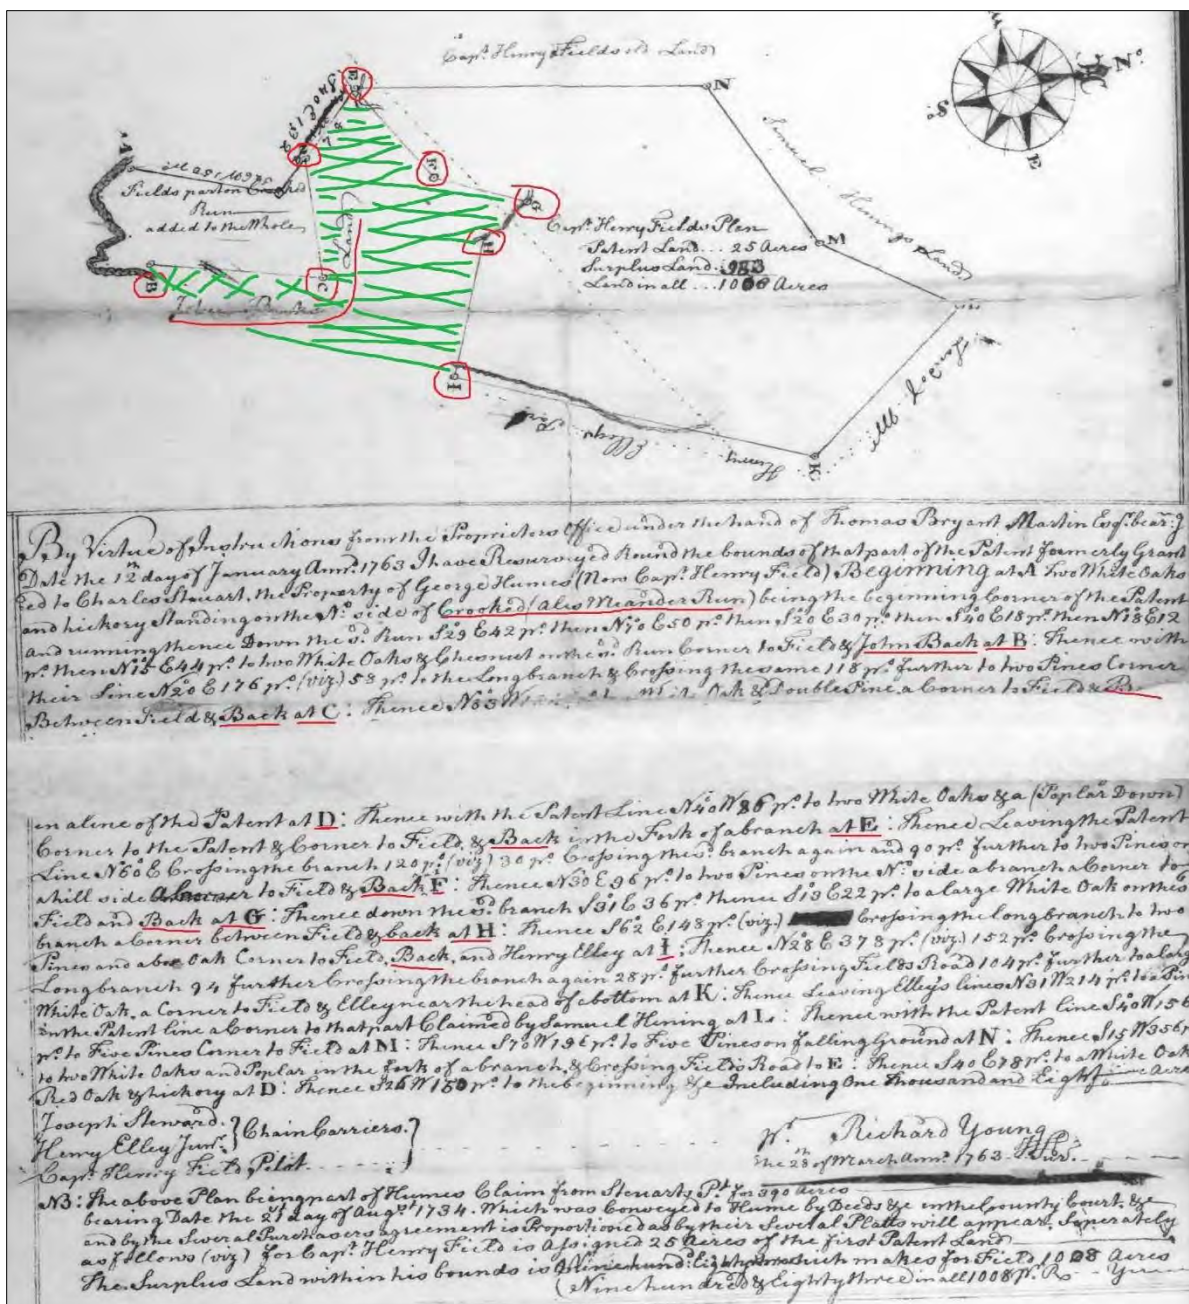 Capt. Henry Fields old Land
N
N.o
S.o
E
W
A
E
F
G
H
C
B
I
K
M
Samuel Henings Land
Jno E 132
78
Fields part on Crooked
Run
added to the Whole
Land
Capt. Henry Fields Plan
Patent Land . . . 25 Acres
Surplus Land . 983
Land in all . . . 1008 Acres
Henry Elleys Line
By Virtue of Instructions from the Proprietors Office under the hand of Thomas Bryant Martin Esqr. bear:g
Date the 12th day of January Ann.o 1763 I have Resurveyed Round the bounds of that part of the Patent formerly Grant
ed to Charles Stuart, the Property of George Humes (Now Capt. Henry Field) Beginning at A two White Oaks
and hickory Standing on the N.o side of Crooked (Ales Meander Run) being the beginning Corner of the Patent
and running thence Down the sd. Run S.o29 E 42 p.o then N.o70 E 50 p.o then S.o20 E 30 p.o then S.o40 E 18 p.o then N.o18 E 12
p.o then N.o15 E 44 p.o to two White Oaks & Chesnut on the sd. Run Corner to Field & John Back at B: Thence with
their Line N.o20 E 176 p.o (viz) 58 p.o to the Longbranch & Crossing the same 118 p.o further to two Pines Corner
Between Field & Back at C: Thence N.o83 W Oak & Double Pine, a Corner to Field &
in a line of the Patent at D: Thence with the Patent Line N.o40 W 86 p.o to two White Oaks & a (Poplar Down)
Corner to the Patent & Corner to Field, & Back in the Fork of a branch at E: Thence Leaving the Patent
Line N.o60 E Crossing the branch 120 p.o (viz) 30 p.o Crossing the sd. branch again and 90 p.o further to two Pines on
a hill side a Corner to Field & Back F: Thence N.o30 E 96 p.o to two Pines on the N.o side a branch a Corner to
Field and Back at G: Thence down the sd. branch S.o31 E 36 p.o thence S.o13 E 22 p.o to a large White Oak on the s
branch a Corner between Field & back at H: Thence S.o62 E 148 p.o (viz.) Crossing the long branch to two
Pines and a Oak Corner to Field, Back, and Henry Elley at I: Thence N.o28 E 378 p.o (viz.) 152 p.o Crossing the
Longbranch 94 further Crossing the branch again 28 p.o further Crossing Fields Road 104 p.o further to a larg
White Oak, a Corner to Field & Elley near the head of a bottom at K: Thence Leaving Elleys lines N.o31 W 214 p.o to a Pine
in the Patent line a Corner to that part Claimed by Samuel Hening at L: Thence with the Patent line S.o40 W 156
p.o to Five Pines Corner to Field at M: Thence S.o70 W 196 p.o to Five Pines on falling Ground at N: Thence S.o15 W 356 p
to two White Oaks and Poplar in the fork of a branch, & Crossing Fields Road to E: Thence S.o40 E 78 p.o to a White Oak
Red Oak & hickory at D: Thence S.o26 W 150 p.o to the beginning &c Including One Thousand and Eight Acres
Joseph Steward.
Henry Elley Junr. } Chain Carriers.
Capt. Henry Field Pilot.
pr. Richard Young
the 28th of March Ann.o 1763 Sur.
NB: The above Plan being part of Humes Claim from Steuarts Pt. for 390 Acres
bearing Date the 21st day of Augt. 1734. Which was Conveyed to Hume by Deeds &c in the County Court, &c
and by the Several Purchasers agreement is Proportioned as by their Several Platts will appear, Seperately
as follows (viz) for Capt. Henry Field is Assigned 25 Acres of the first Patent Land
The Surplus Land within his bounds is Nine hund: Eighty such makes for Field 1008 Acres
(Nine hundred & Eighty three in all 1008 p.r R. Y